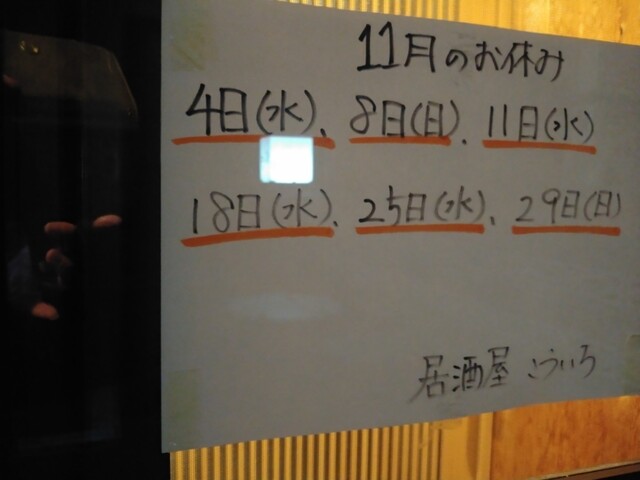 11月のお休み
4日(水)、8日(日)、11日(水)
18日(水)、25日(水)、29日(日)
居酒屋 こういち